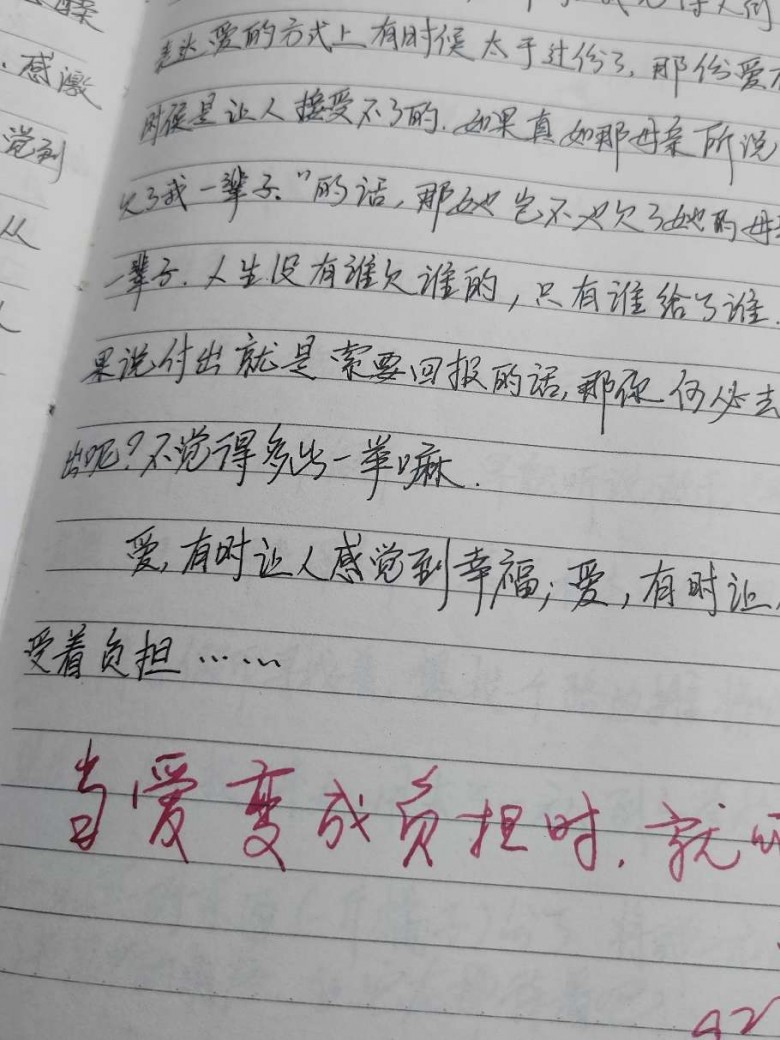 感激
觉到
从
表达爱的方式上有时候太于过份了,那份爱有
时候是让人接受不了的.如果真如那母亲所说
欠了我一辈子."的话,那她岂不也欠了她的母
一辈子.人生没有谁欠谁的,只有谁给了谁.
果说付出就是索要回报的话,那你何必去
出呢?不觉得多出一举嘛.
爱,有时让人感觉到幸福;爱,有时让
受着负担……
当爱变成负担时,就
92